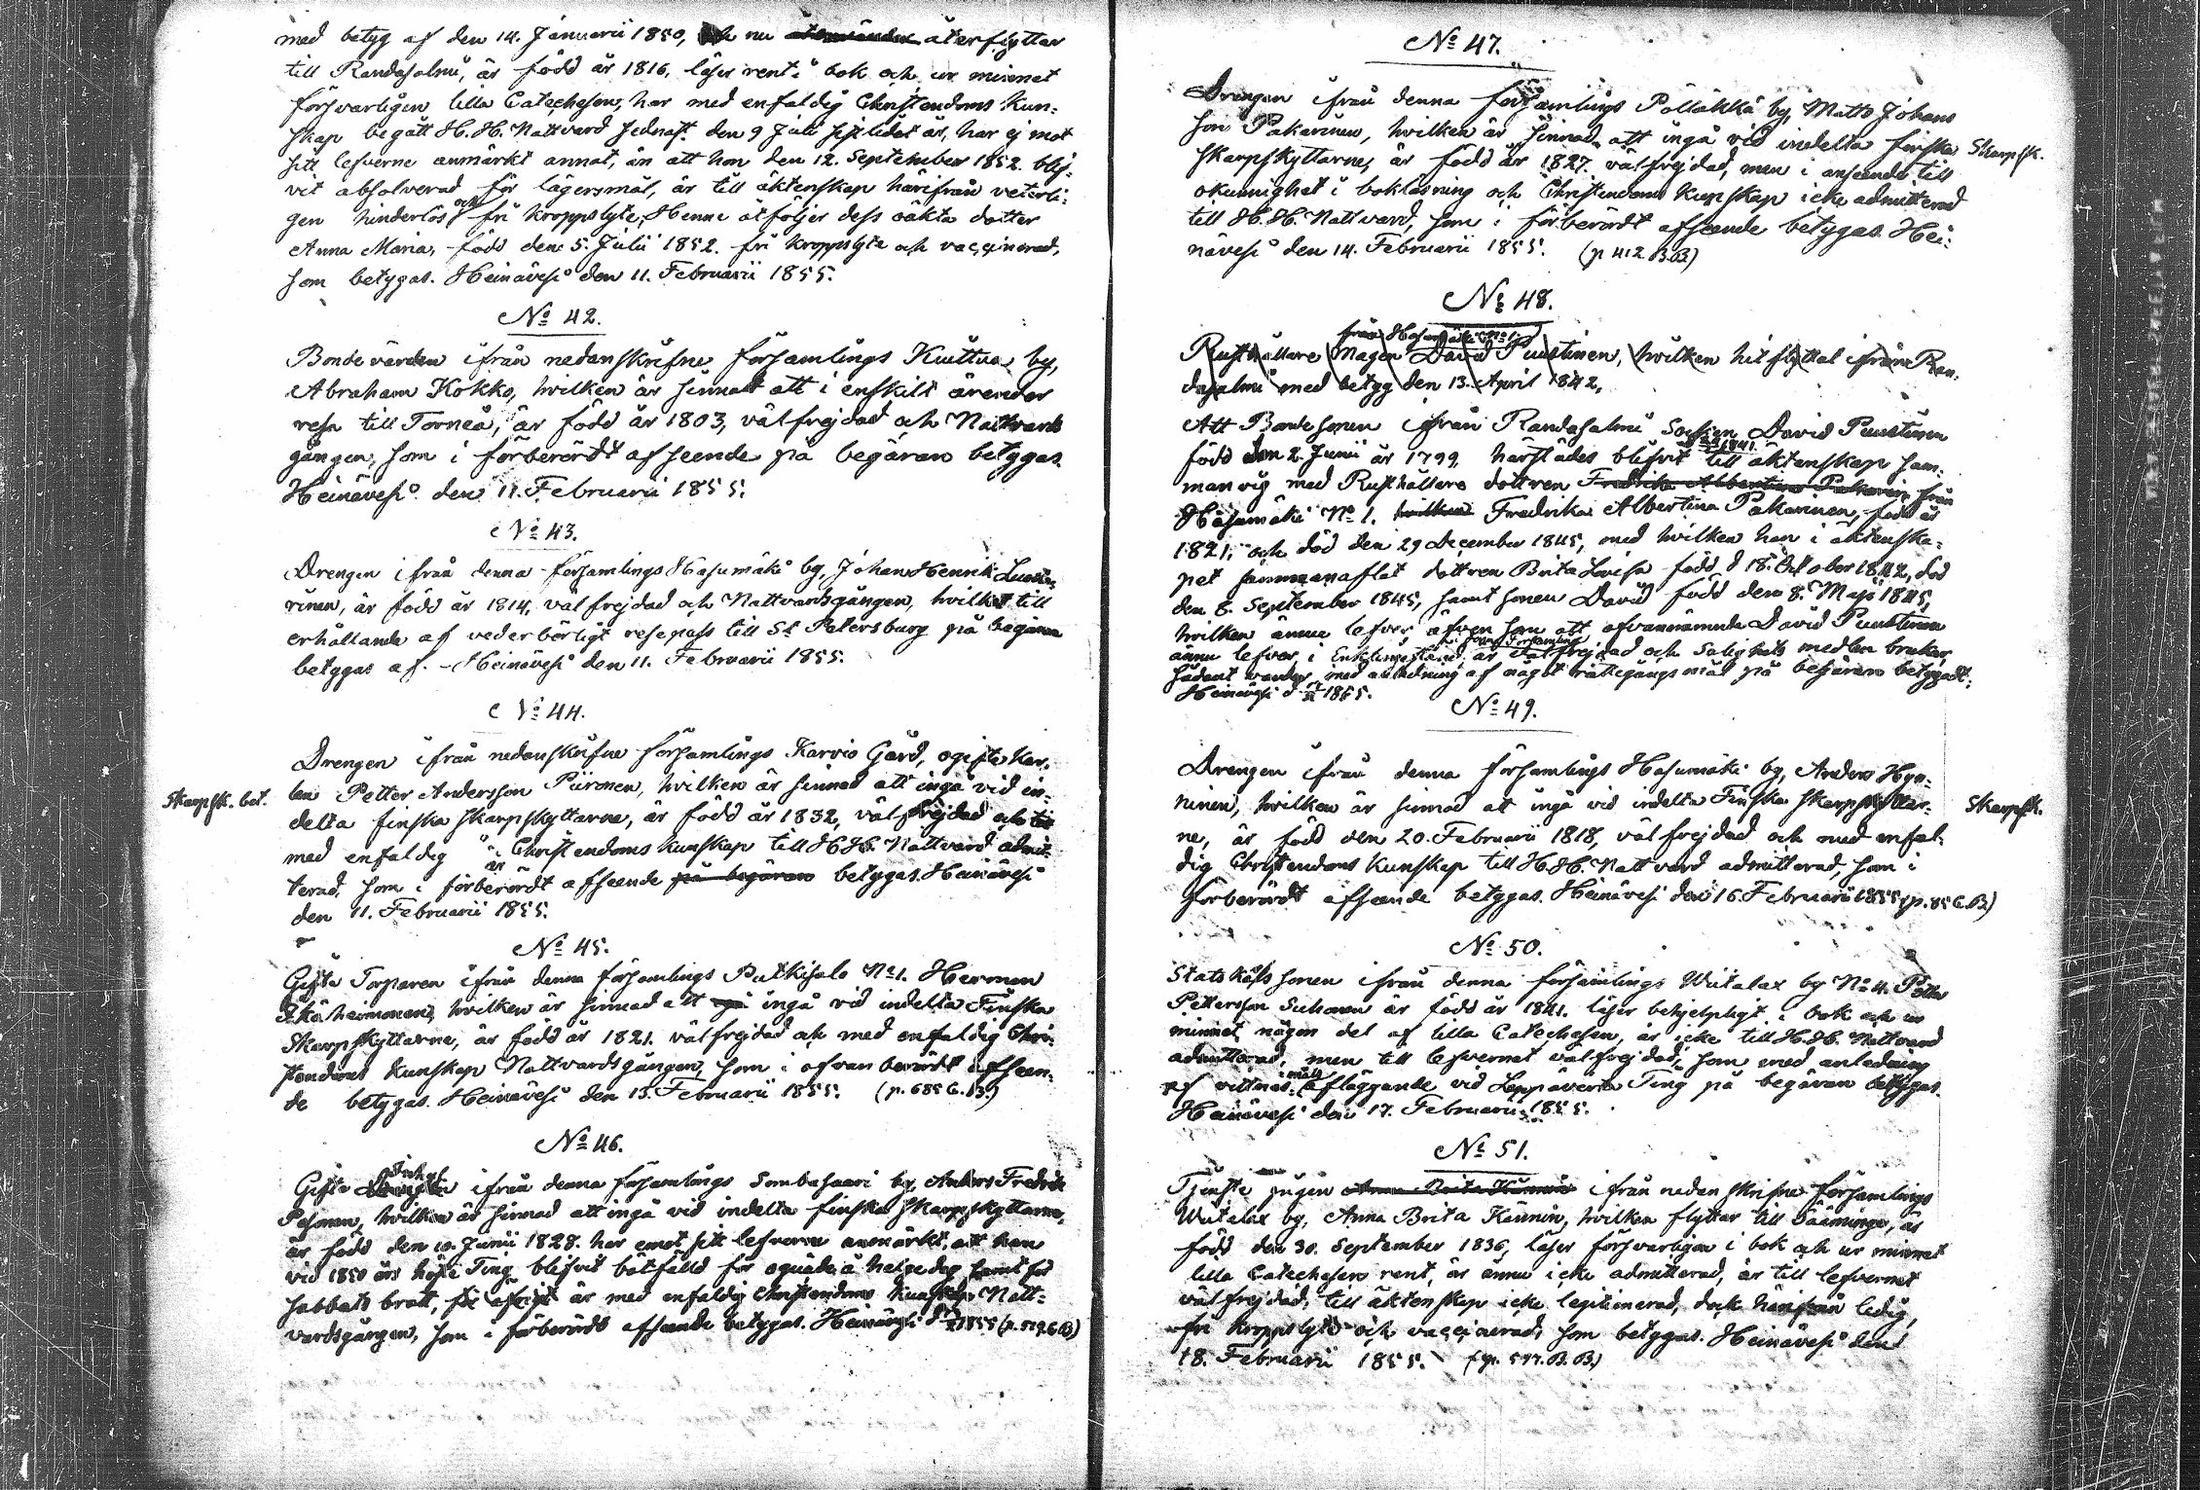 med betyg af den 14. Januarii 1850, nu återflyttar
till Randasalmi, är född år 1816, läser rent i bok och ur minnet
försvarligen lilla Catechesen, har med enfaldig Christendoms kun-
skap begått H. H. Nattvard sednast den 9 Juli sistlidet år, har ej mot
sitt lefverne anmärkt annat, än att hon den 12. September 1852 blif-
vit absolverad för lägersmål, är till äktenskap härifrån veterli-
gen hinderlös och fri kroppslyte, Henne åtföljer dess oäkta dotter
Anna Maria, född den 5. Julii 1852. fri kroppslyte och vaccinerad,
som betygas. Heinävesi den 11. Februarii 1855.
No 42.
Bonde värden ifrån nedanskrifne församlings Kuittua by,
Abraham Kokko, hvilken är sinnad att i enskilt ärender
resa till Torneå, är född år 1803, välfrejdad och Nattvards
gången, som i förberördt afseende på begäran betygas.
Heinävesi den 11. Februarii 1855.
No 43.
Drengen ifrån denna församlings Hasumäki by, Johan Henrik
rinen, är född år 1814, välfrejdad och Nattvardsgången, hvilket till
erhållande af vederbörligt resepass till St Petersburg på begäran
betygas af. Heinävesi den 11. Februarii 1855.
No 44.
Drengen ifrån nedanskrifne församlings Karvio Gård, ogifte kar-
Skarpsk. bet.
len Petter Andersson Piironen, hvilken är sinnad att ingå vid in-
delta finska skarpskyttarne, är född år 1832, välfrejdad och
med enfaldig Christendoms kunskap till H.H. Nattvard admit-
terad, som i förberördt afseende på begäran betygas. Heinävesi
den 11. Februarii 1855.
No 45.
Gifte Torparen ifrån denna församlings Putkisalo No 1. Herman
hvilken är sinnad att ingå vid indelta Finska
Skarpskyttarne, är född år 1821. välfrejdad och med enfaldig Chri-
stendoms kunskap Nattvardsgången, som i ofvan berördt afseen-
de betygas. Heinävesi den 15. Februarii 1855. (p. 685 C.B.)
No 46.
Gifte ifrån denna församlings Sombasaari by, Anders Fredrik
Pesonen, hvilken är sinnad att ingå vid indelta finska skarpskyttarne,
är född den 10. Junii 1828. har emot sitt lefverne anmärkt, att han
vid 1850 års höste Ting blifvit bötfälld för oquäda å helgedag samt för
sabbats brott, är med enfaldig Christendoms kunskap Natt-
vardsgången, som i förberördt afseende betygas. Heinävesi 1855 (p. 519 C.B.)
No 47.
Drengen ifrån denna församlings Pölläkkä by, Matts Johans
son Pakarinen, hvilken är sinnad att ingå vid indelta finska
Skarpsk.
skarpskyttarne, är född år 1827. välfrejdad, men i anseende till
okunnighet i bokläsning och Christendoms kunskap icke admitterad
till H. H. Nattvard, som i förberördt afseende betygas. Hei-
nävesi den 14. Februarii 1855. (p 412 B.B)
No 48.
från Hasumäki No 1
Rusthållare Magen David Puustinen, hvilken hit flyttat ifrån Ran-
dasalmi med betyg den 13. April 1842,
Att Bondesonen ifrån Randasalmi Socken David Puustinen
född den 2. Junii år 1799, härstädes blifvit till äktenskap sam-
manvig med Rusthållare dottren Fredrika Albertina Pakarinen från
Hasumäki No 1. hvilken Fredrika Albertina Pakarinen, född år
1821, och död den 29 December 1845, med hvilken han i äktenska-
pet sammanaflat dottren Brita Lovisa född d 18. October 1842, död
den 8. September 1845, samt sonen David född den 8. Maji 1845,
hvilken ännu lefver äfven som att ofvannämnde David Puustinen
ännu lefver i Enklingestånd, är välfrejdad och Salighets medlen brukar,
sådant varder, med anledning af något rättegångsmål på begäran betygadt.
Heinävesi d 1855.
No 49.
Drengen ifrån denna församlings Hasumäki by, Anders Hyn-
ninen, hvilken är sinnad att ingå vid indelta Finska skarpskyttar-
Skarpsk.
ne, är född den 20. Februarii 1818, välfrejdad och med enfal-
dig Christendoms kunskap till H.H. Nattvard admitterad, som i
förberördt afseende betygas. Heinävesi den 16. Februarii 1855 (p. 85 C.B.)
No 50.
Statskäls sonen ifrån denna församlings Wiitalax by No 4. Petter
Pettersson Suhonen är född år 1841. läser behjelpligt i bok och ur
minnet någon del af lilla Catechesen, är icke till H.H. Nattvard
admitterad, men till lefvernet välfrejdad, som med anledning
af vittnes måls afläggande vid Leppävirta Ting på begäran betygas.
Heinävesi den 17. Februarii 1855.
No 51.
Tjenste pigan Anna Brita ifrån nedan skrifne församlings
Wiitalax by, Anna Brita Kannin, hvilken flyttar till Sääminge, är
född den 30. September 1836, läser försvarligen i bok och ur minnet
lilla Catechesen rent, är ännu icke admitterad, är till lefvernet
välfrejdad, till äktenskap icke legitimerad, dock härifrån ledig,
fri kroppslyte och vaccinerad, som betygas. Heinävesi den
18. Februarii 1855. (p. 597. B.B.)